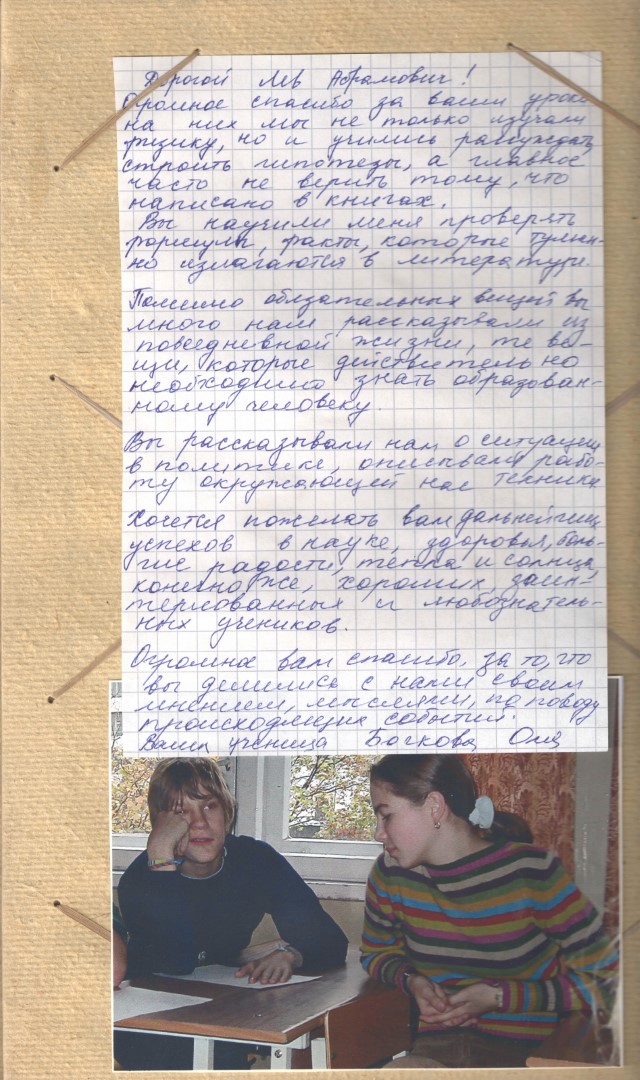 Дорогой Лев Абрамович!
Огромное спасибо за ваши уроки
на них мы не только изучали
физику, но и учились рассуждать,
строить гипотезы, а главное
часто не верить тому, что
написано в книгах.
Вы научили меня проверять
формулы, факты, которые туман-
но излагаются в литературе.
Помимо обязательных вещей вы
много нам рассказывали из
повседневной жизни, те ве-
щи, которые действительно
необходимо знать образован-
ному человеку.
Вы рассказывали нам о ситуации
в политике, описывали рабо-
ту окружающей нас техники
Хочется пожелать вам дальнейших
успехов в науке, здоровья, боль-
шие радости, тепла и солнца,
конечно же, хороших, заин-
тересованных и любознатель-
ных учеников.
Огромное вам спасибо, за то, что
вы делились с нами своим
мнением, мыслями, по поводу
происходящих событий.
Ваша ученица Бочкова Оля